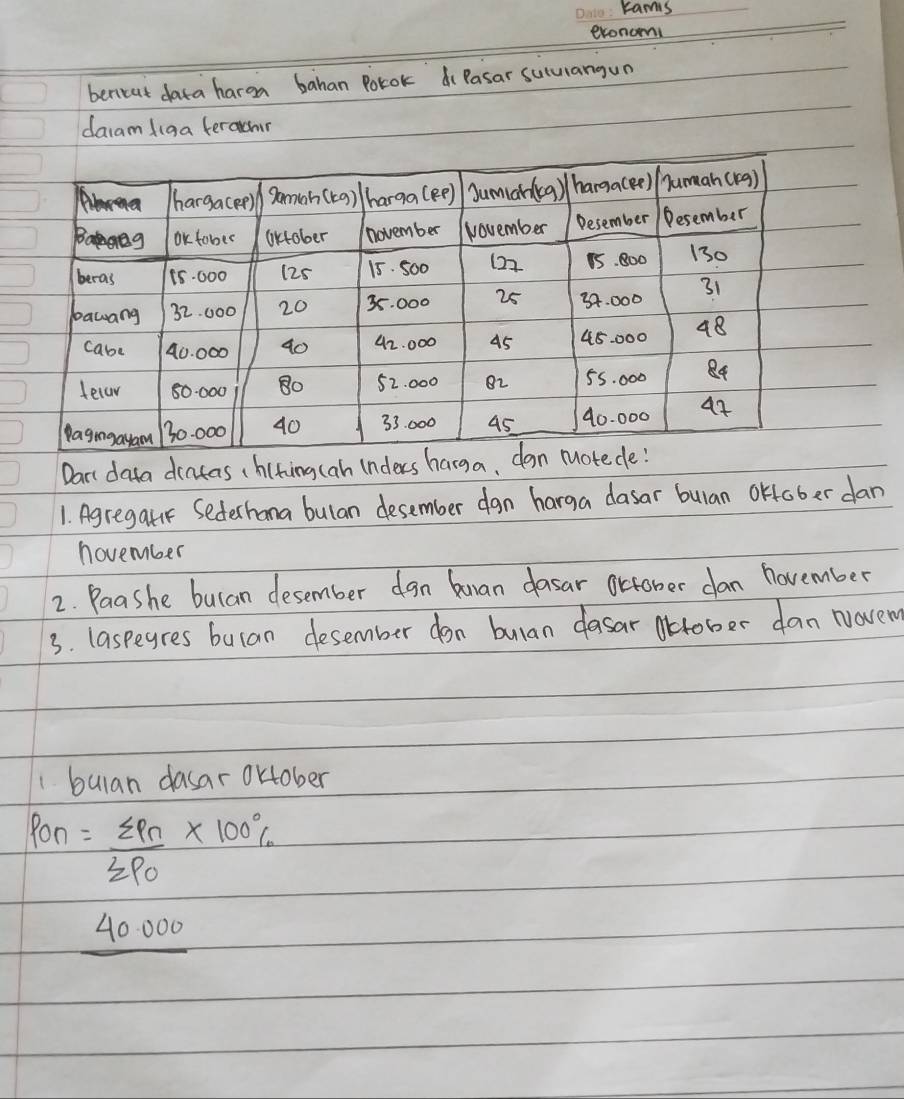 Date: Kamis
ekonomi
berikut data harga bahan Pokok di Pasar suluiangun
dalam tiga terakhir
harga(RP) Jumlah(kg) harga(RP) Jumlah(kg) harga(RP) Jumlah(kg)
oktober Oktober november November Desember Desember
beras 15.000 125 15.500 127 15.800 130
bawang 32.000 20 35.000 25 37.000 31
cabe 40.000 40 42.000 45 45.000 48
telur 50.000 80 52.000 82 55.000 84
Dagingayam 30.000 40 33.000 45 40.000 47
Dari data diatas, hitingcah inders harga, dan motede!
1. Agregatif Sederhana bulan desember dan harga dasar bulan Oktober dan
november
2. Paashe bulan desember dan bulan dasar Oktober dan november
3. laspeyres bulan desember dan bulan dasar Oktober dan Novem
1. bulan dasar Oktober
Pon = ΣPn x 100%
ΣPo
40.000